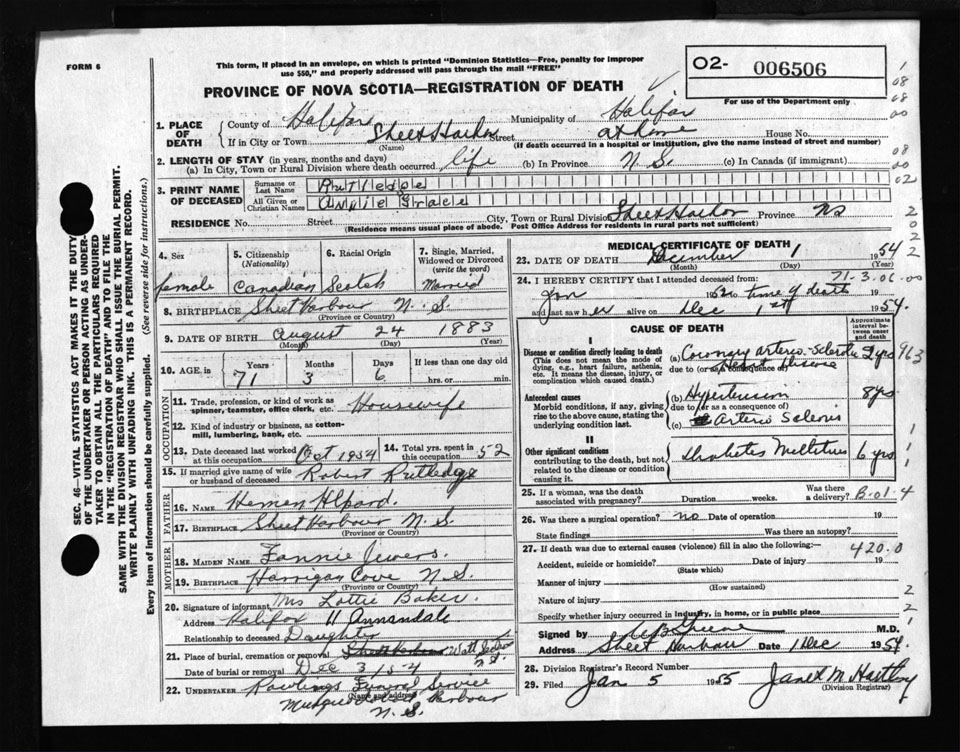 FORM 6
This form, if placed in an envelope, on which is printed "Dominion Statistics—Free, penalty for improper
use 550," and properly addressed will pass through the mail "FREE"
O2- 006506
For use of the Department only
PROVINCE OF NOVA SCOTIA—REGISTRATION OF DEATH
1. PLACE OF DEATH
County of Halifax Municipality of Halifax
If in City or Town Sheet Harbor Street at home House No.
(Name) (If death occurred in a hospital or institution, give the name instead of street and number)
2. LENGTH OF STAY (in years, months and days)
(a) In City, Town or Rural Division where death occurred life (b) In Province N.S. (c) In Canada (if immigrant)
3. PRINT NAME OF DECEASED
Surname or Last Name Rutledge
All Given or Christian Names Grace
RESIDENCE No. Street City, Town or Rural Division Sheet Harbor Province NS
(Residence means usual place of abode. Post Office Address for residents in rural parts not sufficient)
4. Sex female
5. Citizenship (Nationality) Canadian
6. Racial Origin Scotch
7. Single, Married, Widowed or Divorced (write the word) Married
8. BIRTHPLACE Sheet Harbour N.S.
(Province or Country)
9. DATE OF BIRTH August 24 1883
(Month) (Day) (Year)
10. AGE in Years 71 Months 3 Days 6 If less than one day old
hrs. or min.
OCCUPATION
11. Trade, profession, or kind of work as
spinner, teamster, office clerk, etc. Housewife
12. Kind of industry or business, as cotton-
mill, lumbering, bank, etc.
13. Date deceased last worked at this occupation Oct 1954
14. Total yrs. spent in this occupation 52
15. If married give name of wife or husband of deceased Robert Rutledge
FATHER
16. NAME
17. BIRTHPLACE Sheet Harbour N.S.
(Province or Country)
MOTHER
18. MAIDEN NAME Fannie Jewers.
19. BIRTHPLACE Harrigan Cove N.S.
(Province or Country)
20. Signature of informant Mrs Lottie Baker.
Address Halifax 11 Annandale
Relationship to deceased Daughter
21. Place of burial, cremation or removal
Date of burial or removal Dec 3/54
22. UNDERTAKER Rawlings Funeral Service
(Name and address)
Musquodoboit Harbour
N.S.
MEDICAL CERTIFICATE OF DEATH
23. DATE OF DEATH December 1 1954
(Month) (Day) (Year)
71-3-06-00
24. I HEREBY CERTIFY that I attended deceased from:
Jan 1952 to time of death 19
and last saw her alive on Dec 1 1954.
CAUSE OF DEATH
Approximate interval between onset and death
I
Disease or condition directly leading to death
(This does not mean the mode of dying, e.g., heart failure, asthenia, etc. It means the disease, injury, or complication which caused death.)
(a) Coronary arterio-sclerotic 2 yrs 963
due to (or as a consequence of)
Antecedent causes
Morbid conditions, if any, giving rise to the above cause, stating the underlying condition last.
(b) Hypertension 8 yrs
due to (or as a consequence of)
(c) Arterio Sclerosis
II
Other significant conditions
contributing to the death, but not related to the disease or condition causing it.
Diabetes Mellitus 6 yrs
25. If a woman, was the death associated with pregnancy? Duration weeks. Was there a delivery? B-01-4
26. Was there a surgical operation? no Date of operation 19
State findings Was there an autopsy?
27. If death was due to external causes (violence) fill in also the following:— 420.0
Accident, suicide or homicide? Date of injury 19
(State which)
Manner of injury
(How sustained)
Nature of injury
Specify whether injury occurred in industry, in home, or in public place
Signed by M.D.
Address Sheet Harbour Date 1 Dec 1954.
28. Division Registrar's Record Number
29. Filed Jan 5 1955 Janet M Hartling
(Division Registrar)
SEC. 46—VITAL STATISTICS ACT MAKES IT THE DUTY
OF THE UNDERTAKER OR PERSON ACTING AS UNDER-
TAKER TO OBTAIN ALL THE PARTICULARS REQUIRED
IN THE "REGISTRATION OF DEATH" AND TO FILE THE
SAME WITH THE DIVISION REGISTRAR WHO SHALL ISSUE THE BURIAL PERMIT.
WRITE PLAINLY WITH UNFADING INK. THIS IS A PERMANENT RECORD.
Every item of information should be carefully supplied. (See reverse side for instructions.)